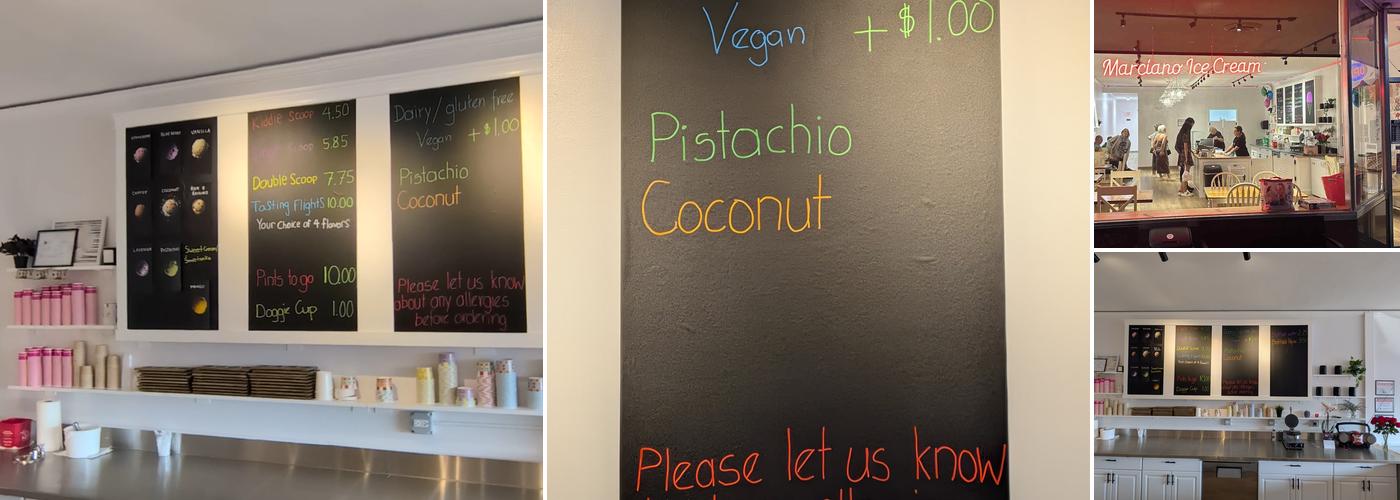 VANILLA
COFFEE
COCONUT
RUM & RAISINS
LAVENDER
PISTACHIO
MANGO
Kiddie Scoop 4.50
Single Scoop 5.85
Double Scoop 7.75
Tasting Flights 10.00
Your Choice of 4 flavors
Pints to go 10.00
Doggie Cup 1.00
Dairy/gluten free
Vegan +$1.00
Pistachio
Coconut
Please let us know
about any allergies
before ordering
Vegan +$1.00
Pistachio
Coconut
Please let us know
Marciano Ice Cream
Double Scoop
Pints to go
Doggie Cup 1.00
Coconut